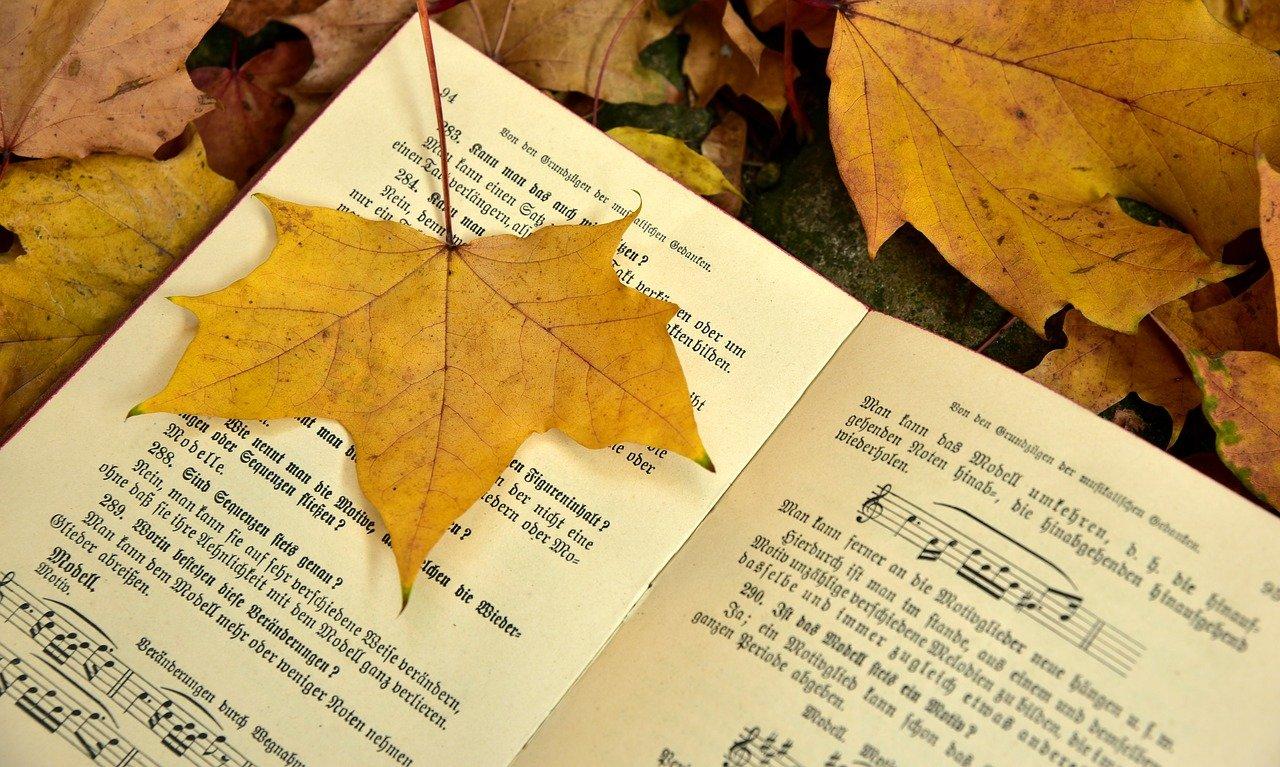 94
Von den Grundzügen der musikalischen Gedanken.
283. Kann man das auch
Man kann einen Satz
einen Takt verlängern, als
284. Kann man
Nein, denn
nur ein
tzen?
Takt verkürzen oder um
aktenbilden.
Wie nennt man die Motive,
ngen oder Sequenzen fließen?
Modelle.
en Figureninhalt?
n der nicht eine
iedern oder Mo-
288. Sind Sequenzen stets genau?
Nein, man kann sie auf sehr verschiedene Weise verändern,
ohne daß sie ihre Aehnlichkeit mit dem Modell ganz verlieren.
289. Worin bestehen diese Veränderungen?
Man kann dem Modell mehr oder weniger Noten nehmen
Glieder abreißen.
lchen die Wieder-
Modell.
Motiv.
Veränderungen durch Wegnahm
Von den Grundzügen der musikalischen Gedanken.
Man kann das Modell umkehren, d. h. die hinauf-
gehenden Noten hinab-, die hinabgehenden hinaufgehend
wiederholen.
Man kann ferner an die Motivglieder neue hängen u. s. w.
Hierdurch ist man im stande, aus einem und demselben
Motiv unzählige verschiedene Melodien zu bilden, die immer
dasselbe und immer zugleich etwas anderes
290. Ist das Modell stets ein Motiv?
Ja; ein Motivglied kann schon das
ganzen Periode abgeben.
Modell.